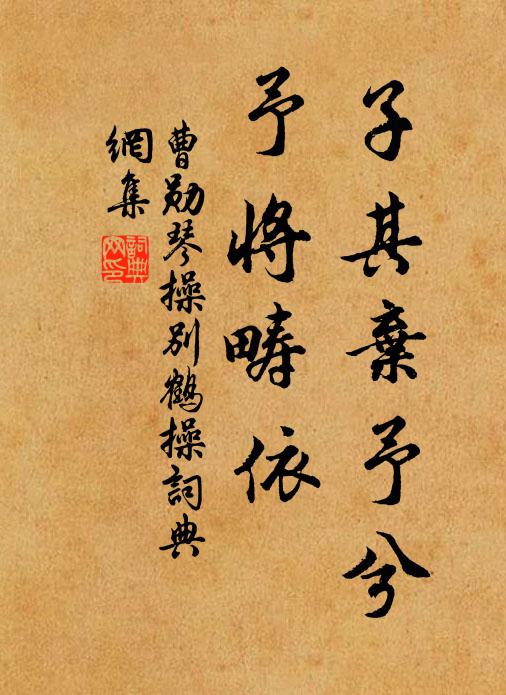 子其棄予兮
予將疇依
曹勛琴操別鶴操詞典
網集
詞典
网印